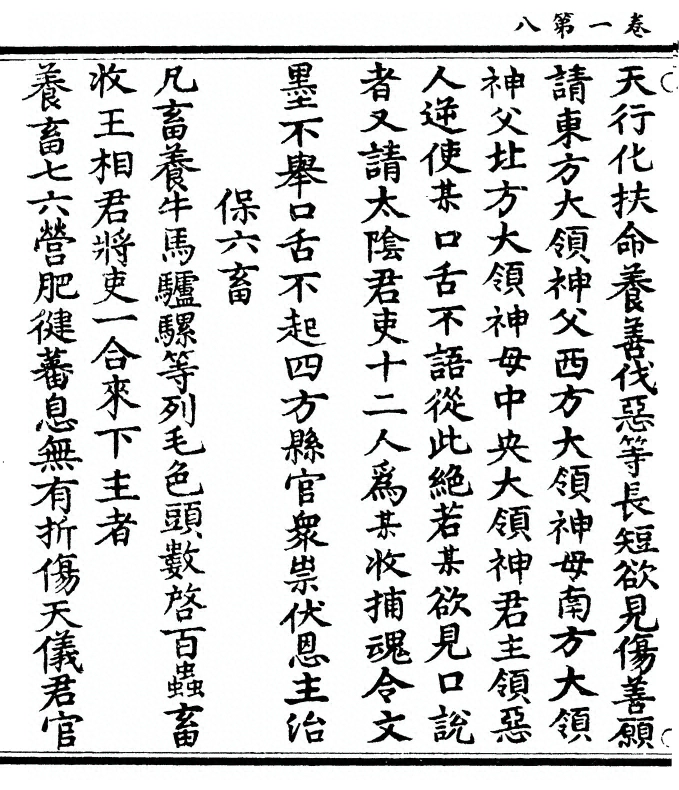 卷一第八
天行化扶命養善伐惡等長短欲見傷善願
請東方大領神父西方大領神母南方大領
神父北方大領神母中央大領神君主領惡
人逆使某口舌不語從此絕若某欲見口說
者又請太陰君吏十二人爲某收捕魂令文
墨不舉口舌不起四方縣官衆祟伏恩主治
保六畜
凡畜養牛馬驢騾等列毛色頭數啓百蟲畜
收王相君將吏一合來下主者
養畜七六營肥健蕃息無有折傷天儀君官